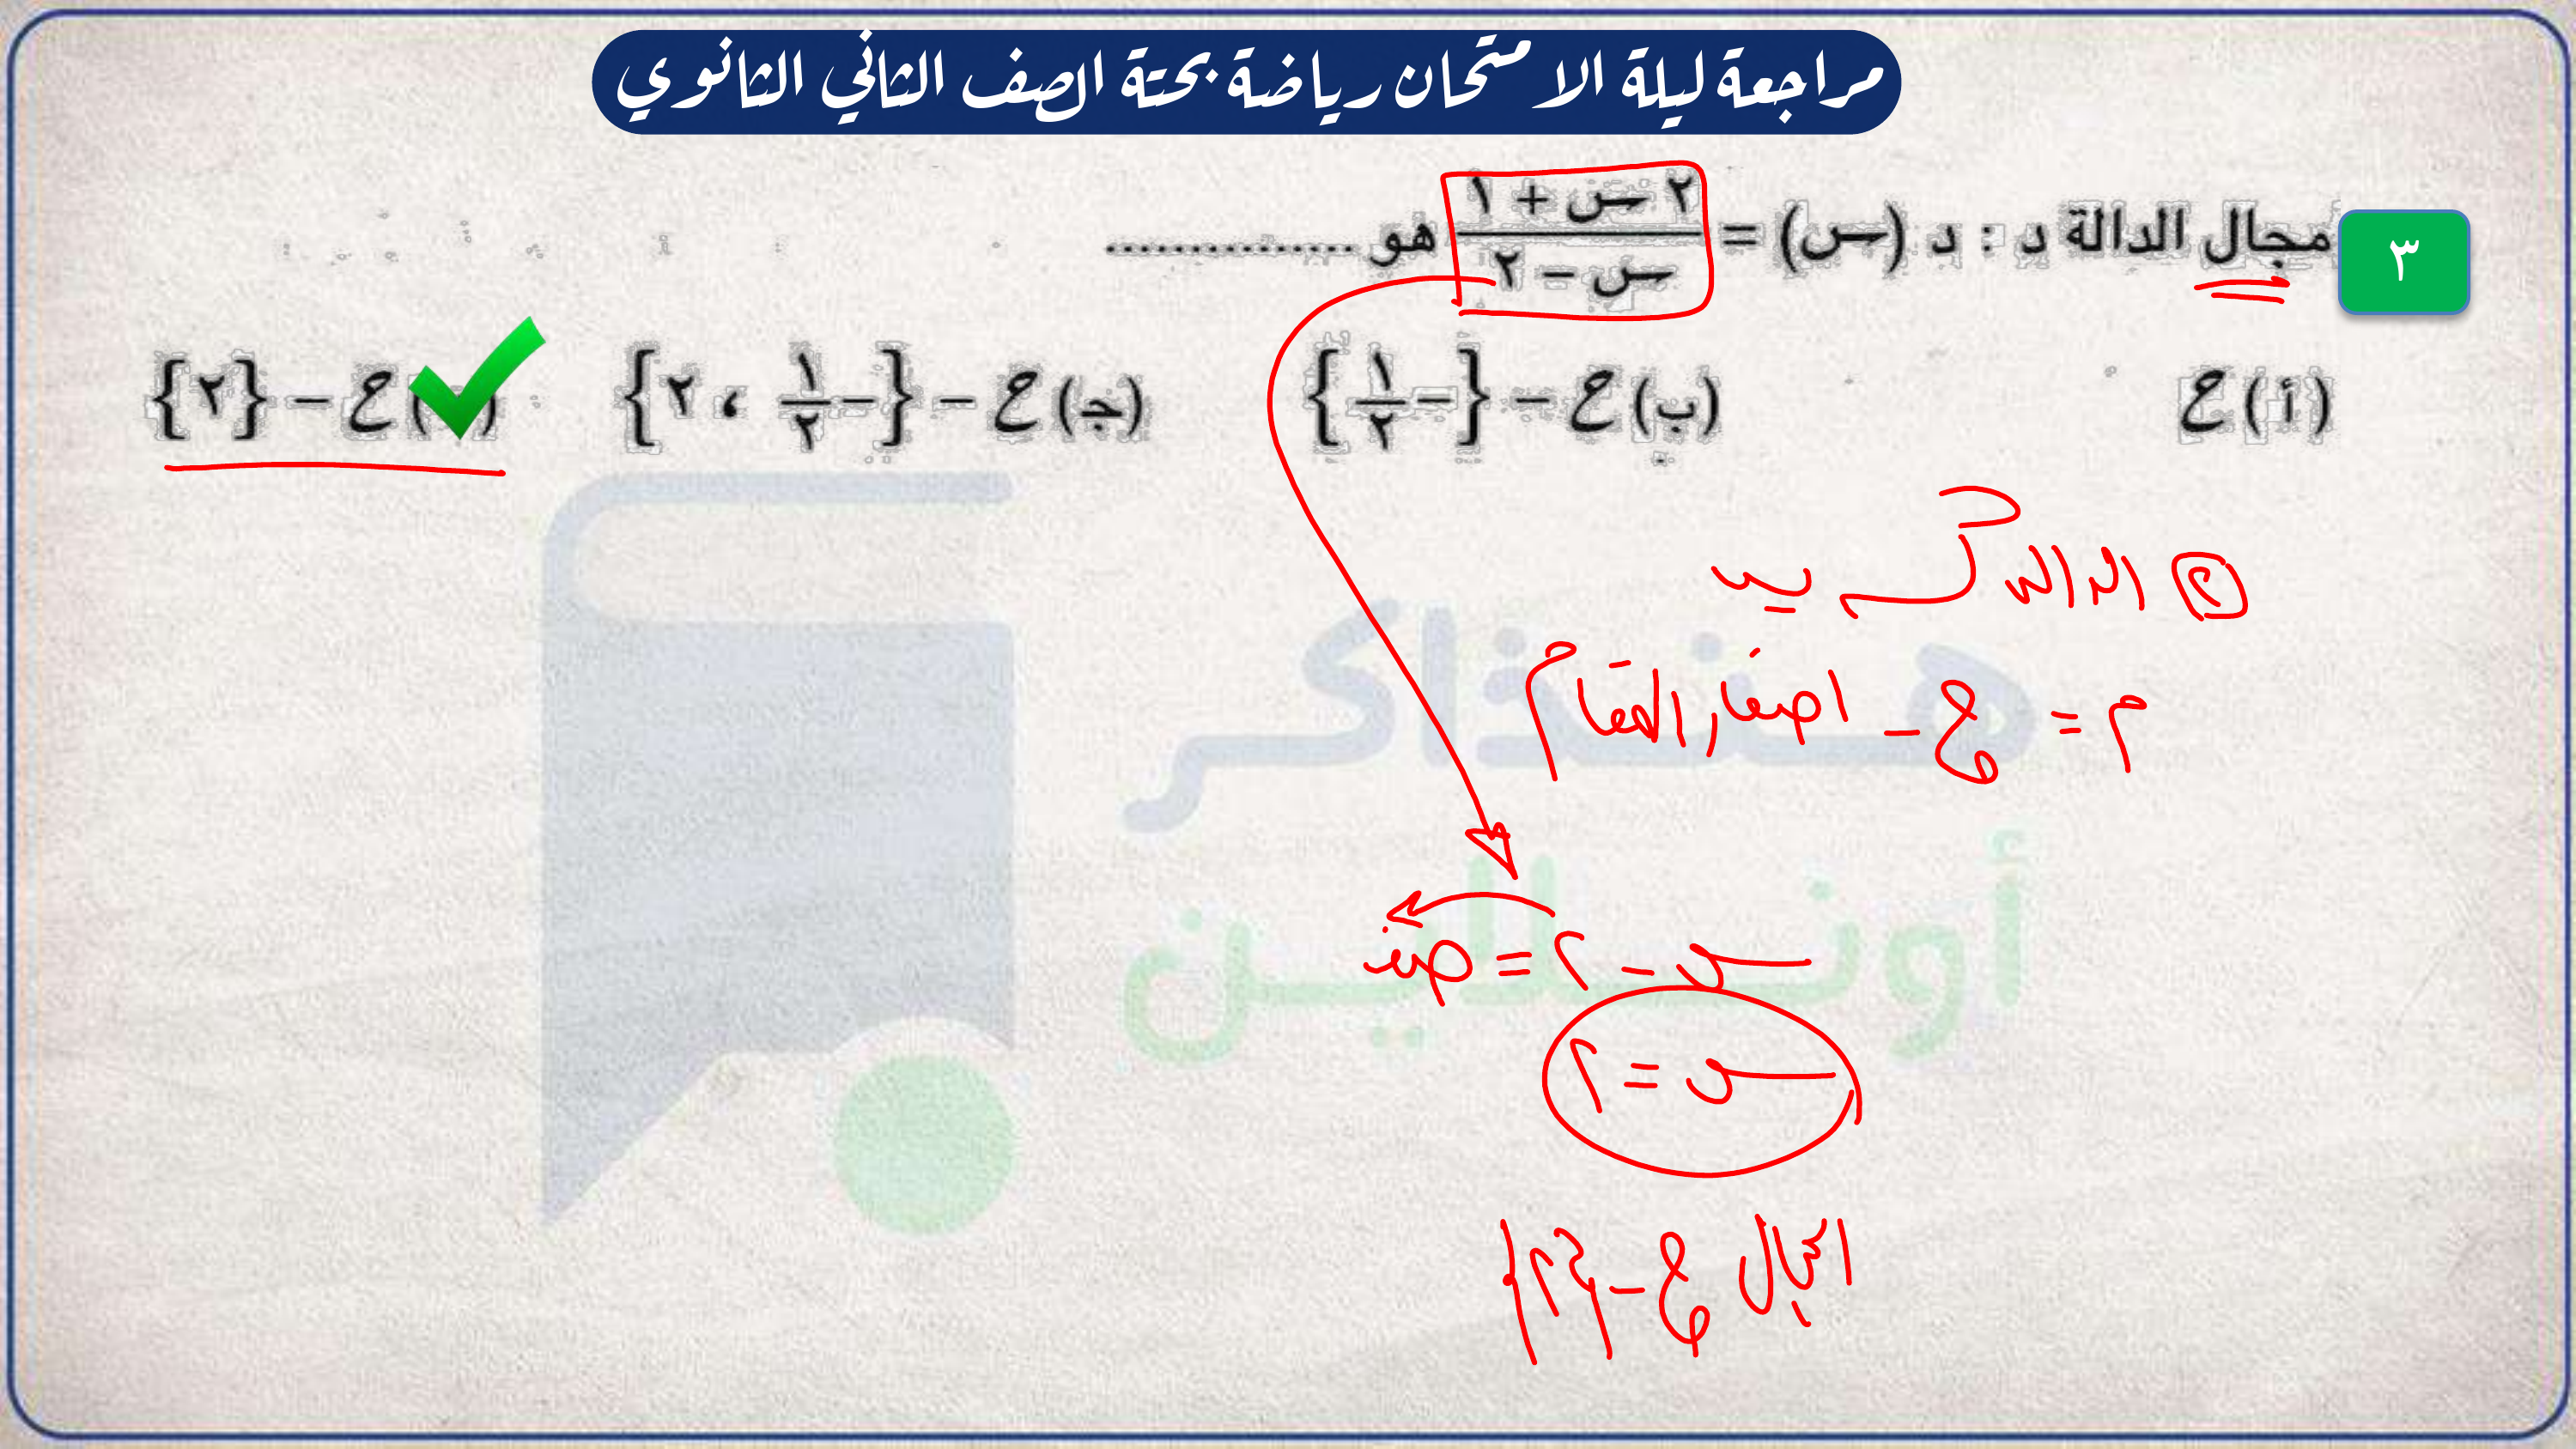 مراجعة ليلة الامتحان رياضة بحتة الصف الثاني الثانوي
٣ مجال الدالة د : د (س) = (٢ س + ١)/(س − ٢) هو ...............
(أ) ح
(ب) ح − {−١/٢}
(ج) ح − {−١/٢ ، ٢}
ح − {٢}
② الدالة كسرية
م = ح − اصفار المقام
س − ٢ = صفر
س = ٢
المجال ح − {٢}
هنذاكر
أونلاين